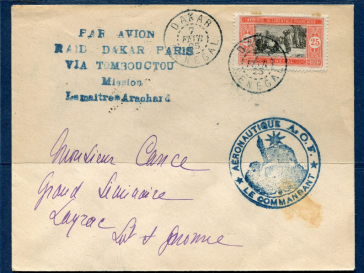 PAR AVION
RAID DAKAR PARIS
VIA TOMBOUCTOU
Mission
Lemaitre-Arrachard
DAKAR
7
FEVR
25
SENEGAL
AFRIQUE OCCIDENTALE FRANÇAISE
25
AÉRONAUTIQUE A.O.F.
LE COMMANDANT
Monsieur Cance
Grand Séminaire
Layrac
Lot & Garonne